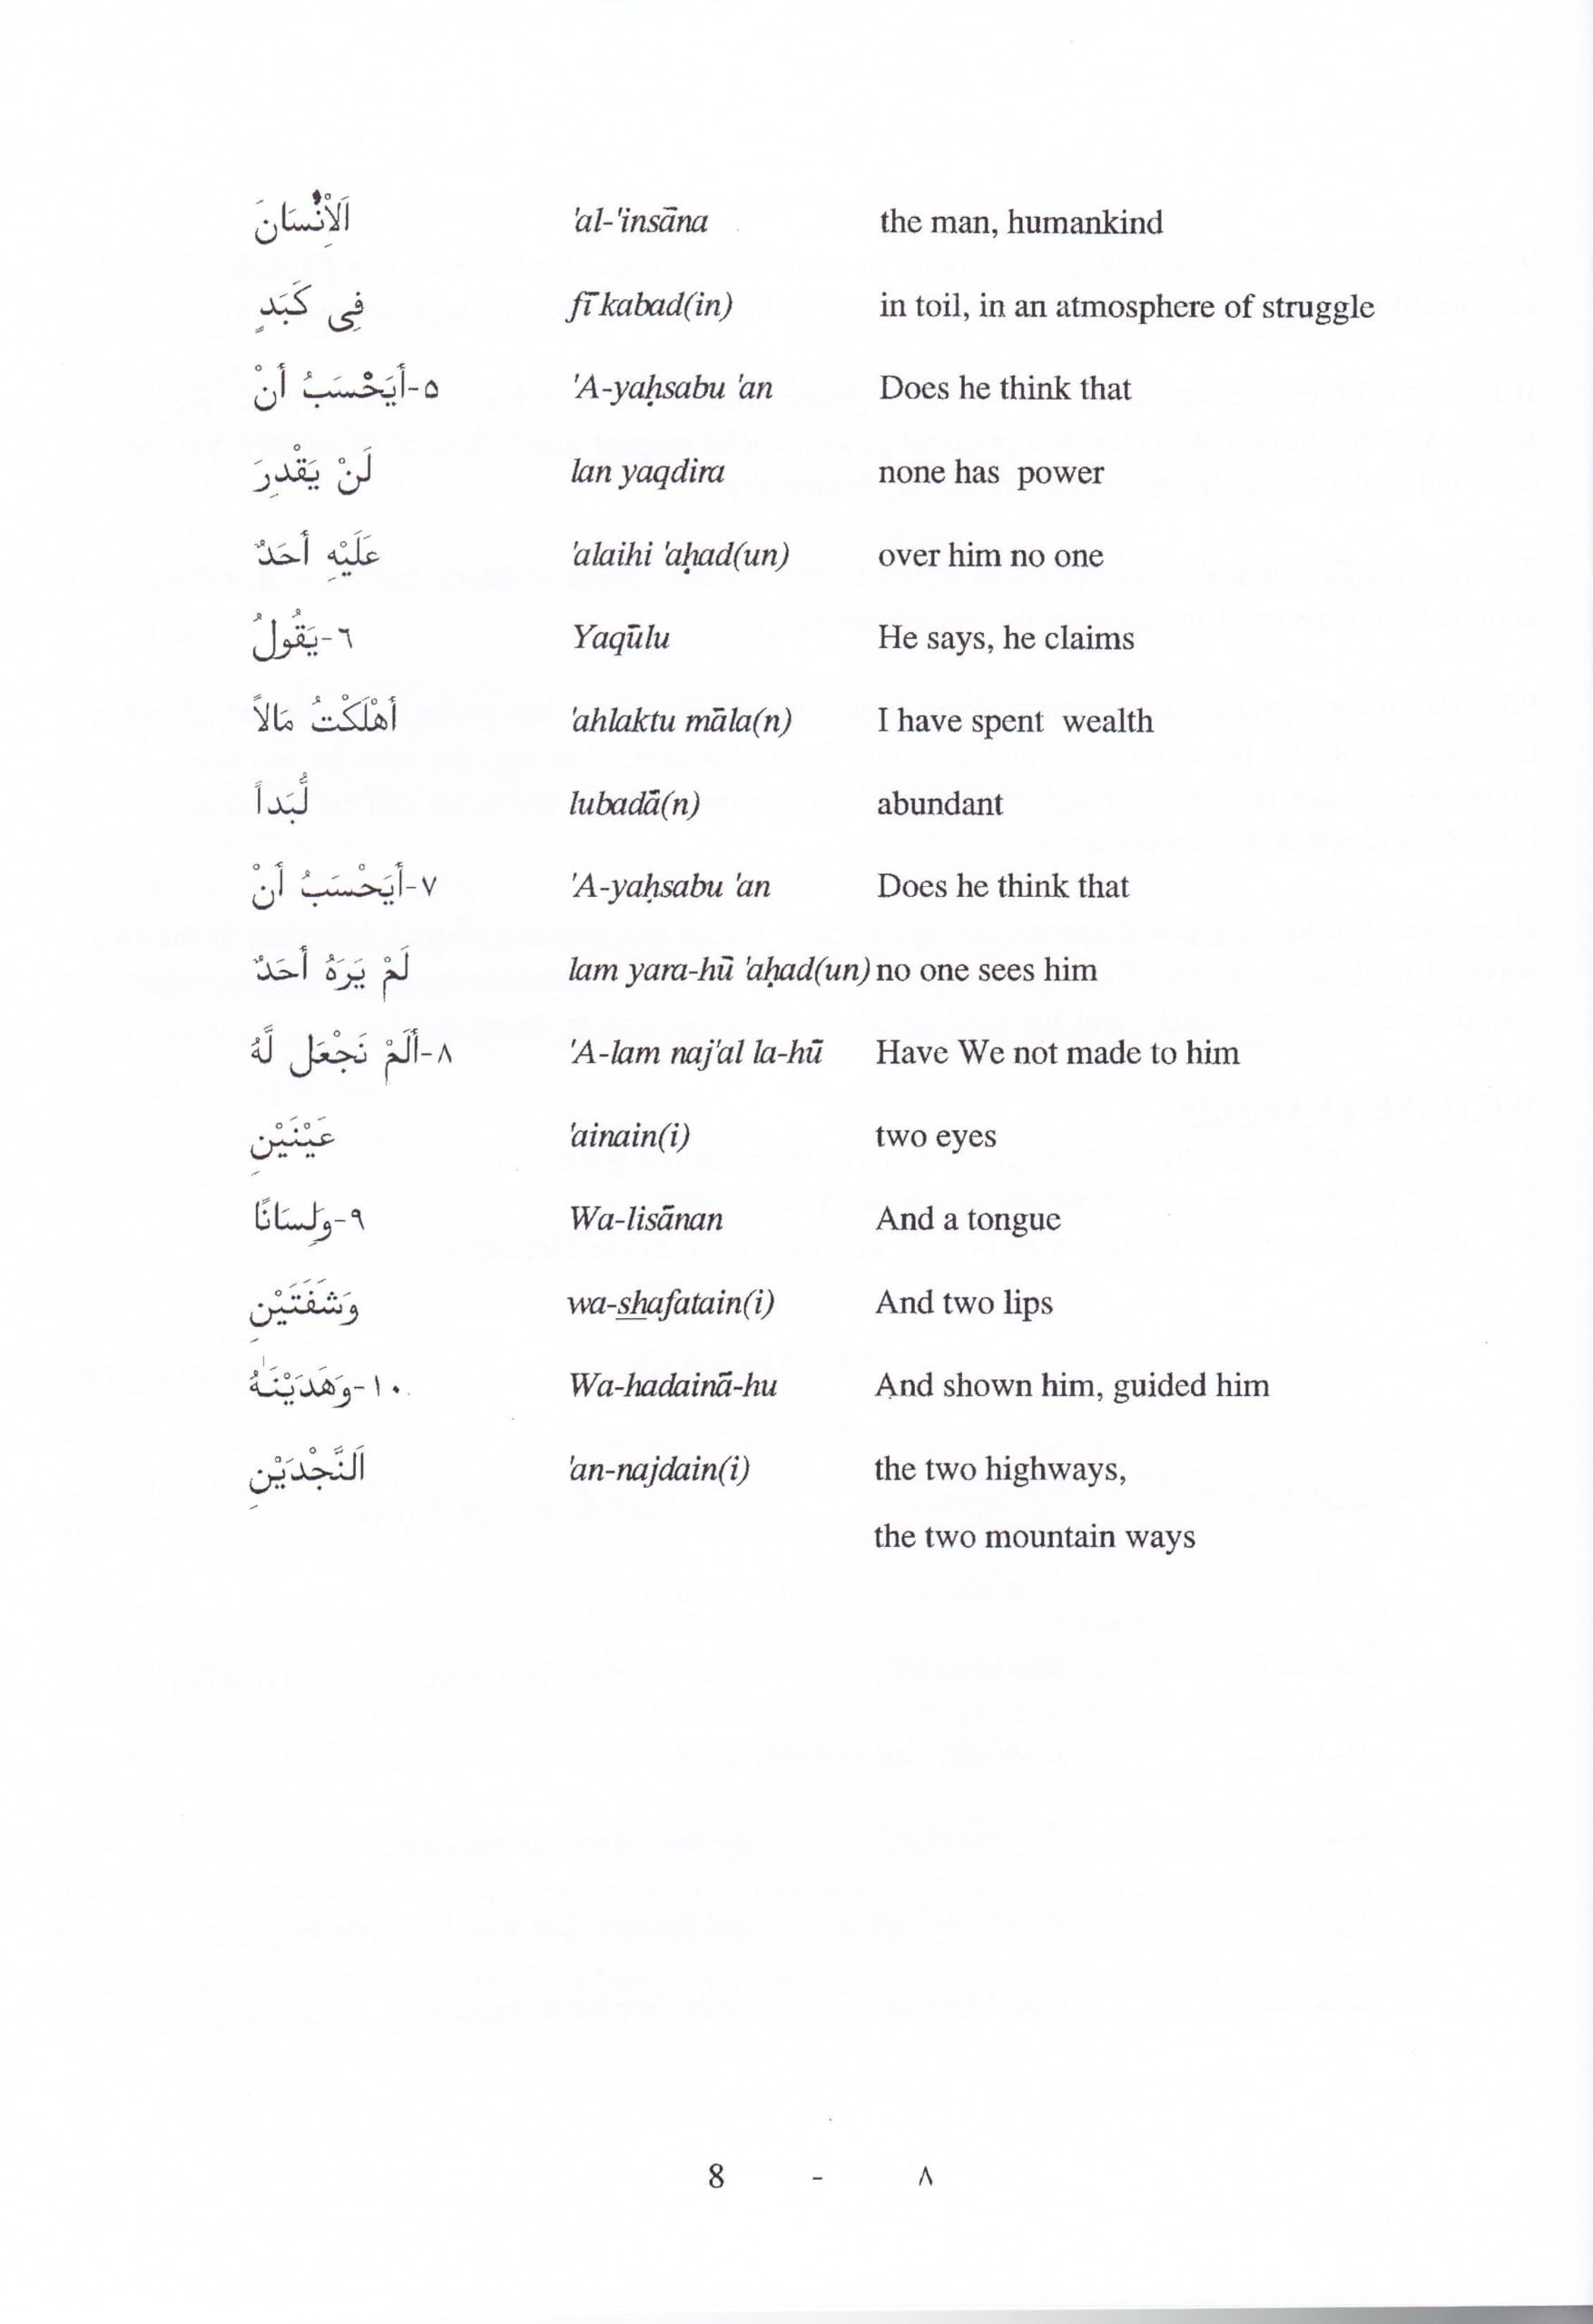 اَلْاِنْسَانَ 'al-'insāna the man, humankind
فِى كَبَدٍ fī kabad(in) in toil, in an atmosphere of struggle
٥-أَيَحْسَبُ أَنْ 'A-yaḥsabu 'an Does he think that
لَنْ يَقْدِرَ lan yaqdira none has power
عَلَيْهِ أَحَدٌ 'alaihi 'aḥad(un) over him no one
٦-يَقُولُ Yaqūlu He says, he claims
أَهْلَكْتُ مَالاً 'ahlaktu māla(n) I have spent wealth
لُّبَداً lubadā(n) abundant
٧-أَيَحْسَبُ أَنْ 'A-yaḥsabu 'an Does he think that
لَمْ يَرَهُ أَحَدٌ lam yara-hū 'aḥad(un) no one sees him
٨-أَلَمْ نَجْعَل لَّهُ 'A-lam naj'al la-hū Have We not made to him
عَيْنَيْنِ 'ainain(i) two eyes
٩-وَلِسَانًا Wa-lisānan And a tongue
وَشَفَتَيْنِ wa-shafatain(i) And two lips
١٠-وَهَدَيْنَٰهُ Wa-hadainā-hu And shown him, guided him
اَلنَّجْدَيْنِ 'an-najdain(i) the two highways,
the two mountain ways
8 - ٨